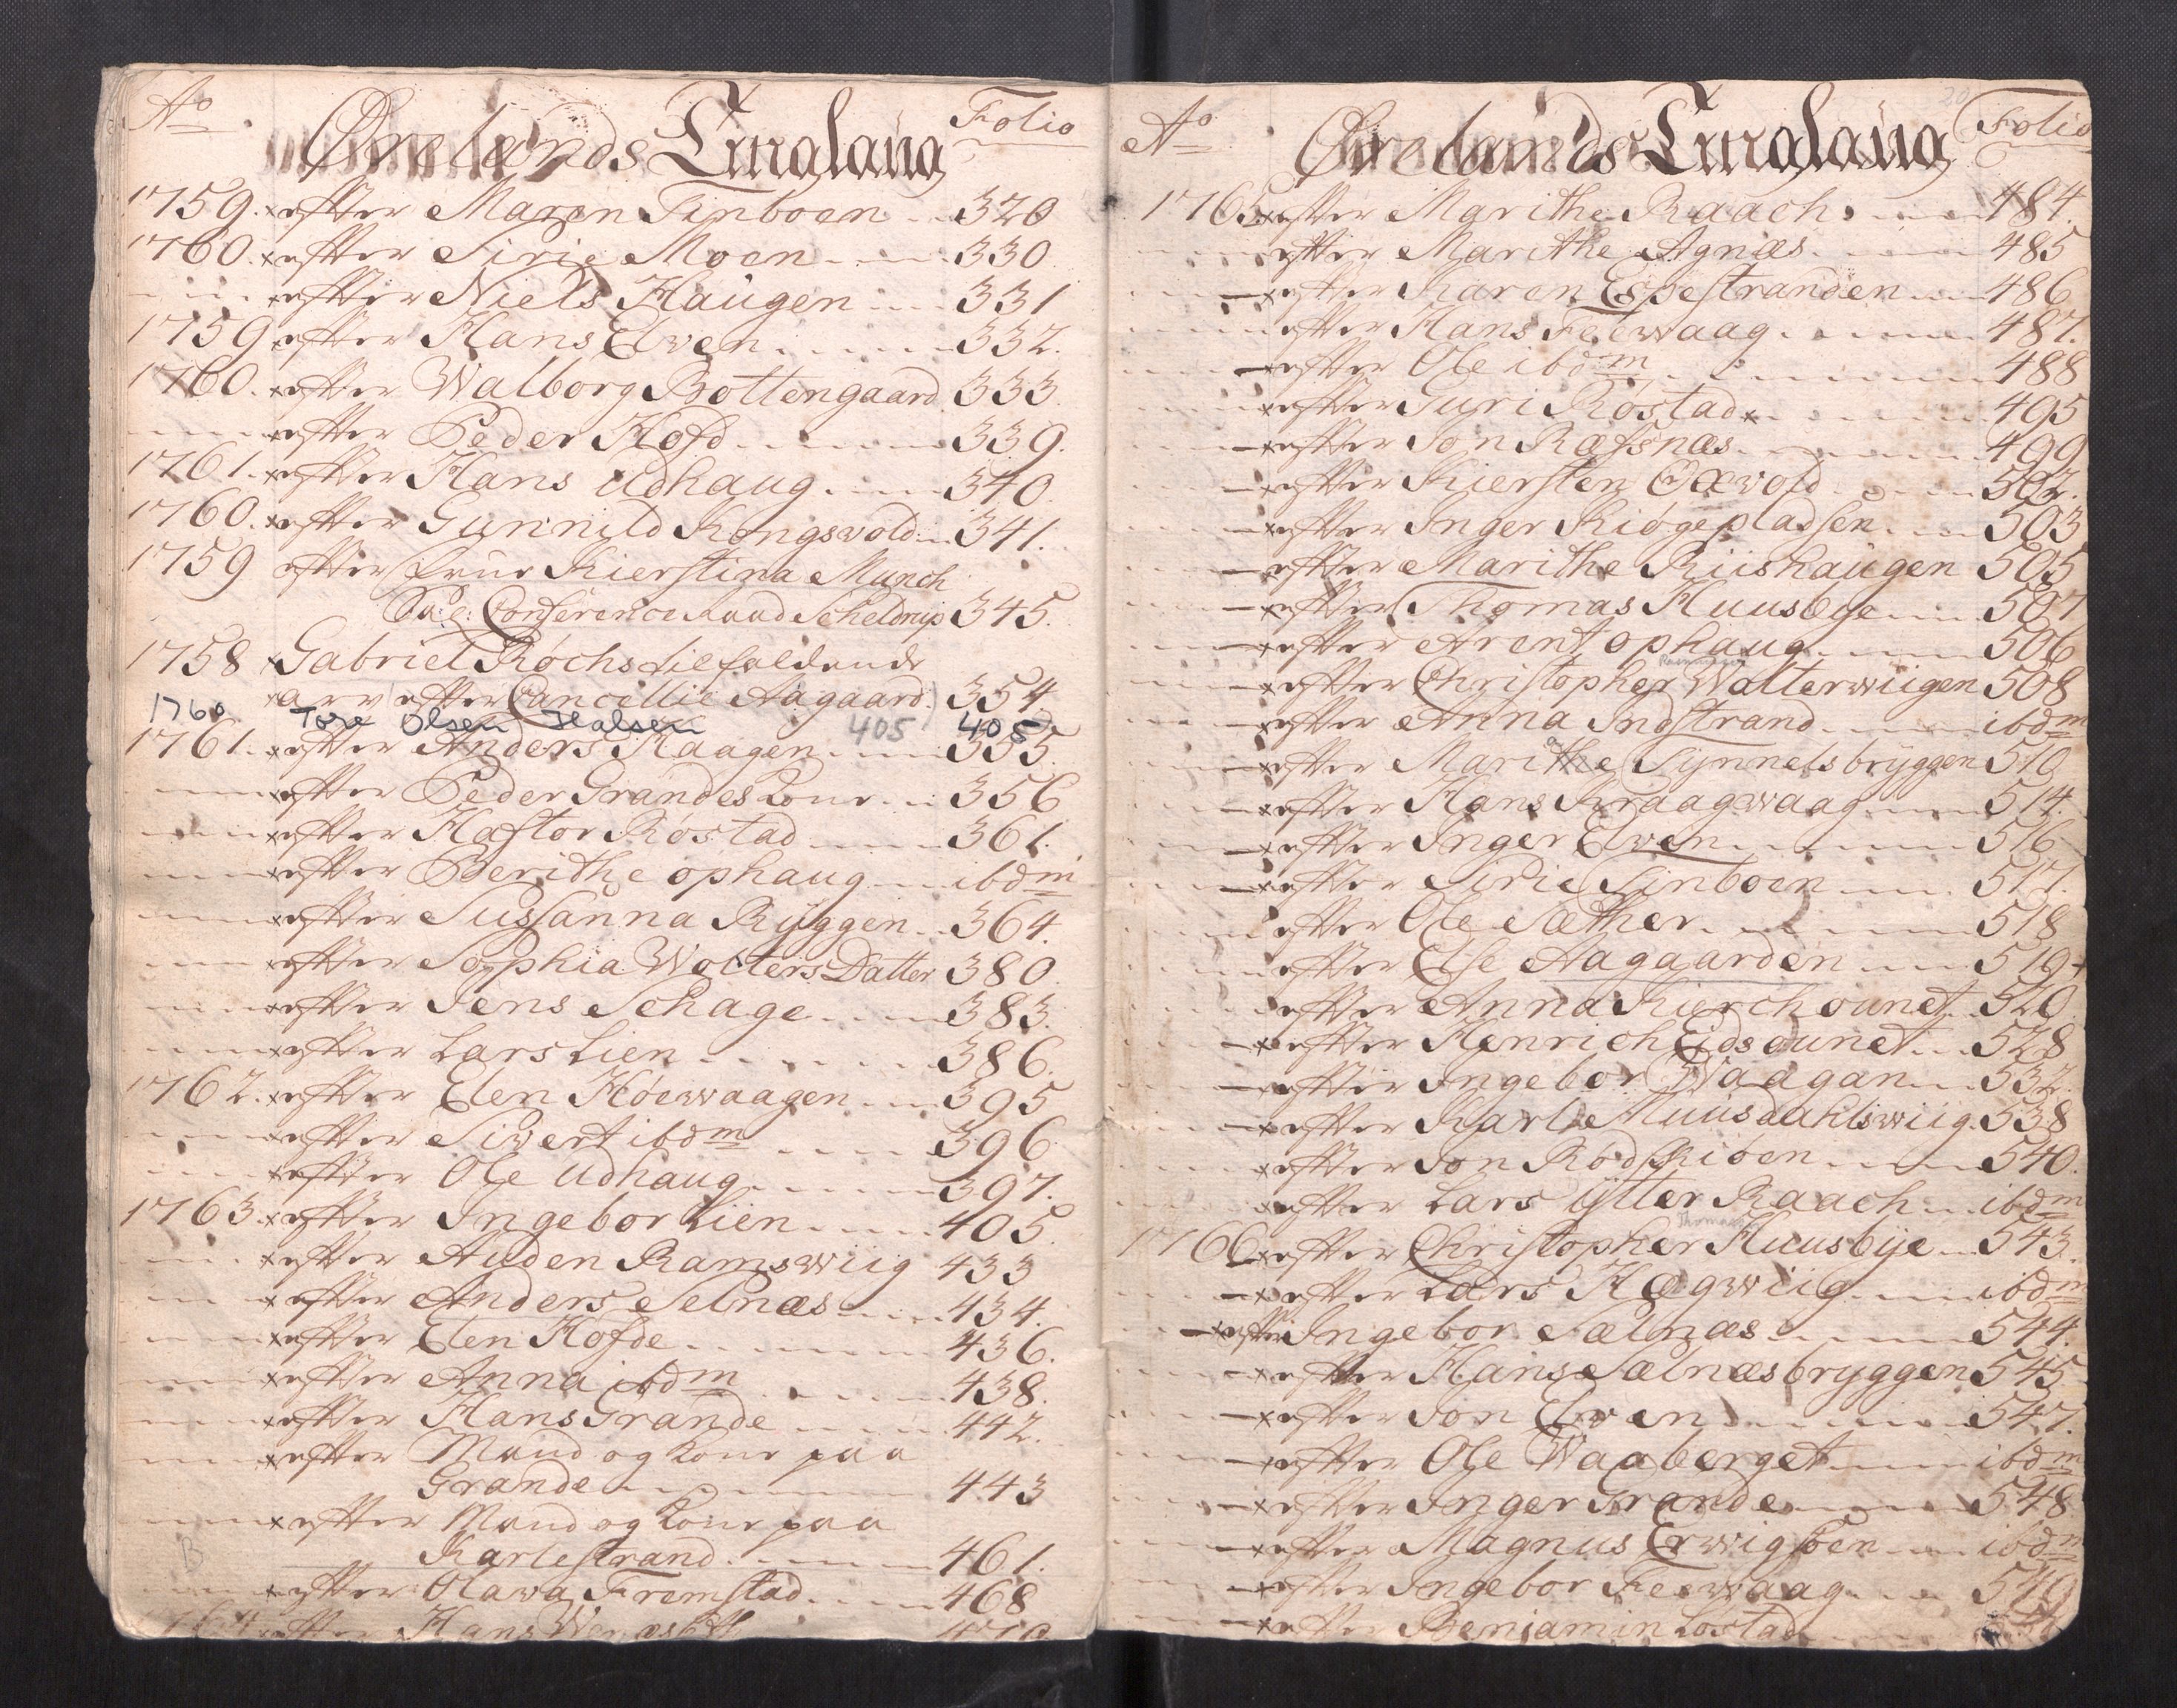 Ao Ørelands Tinglaug Folio
1759. efter Maren Finboen 320
1760. efter Sirie Moen 330
efter Niels Haugen 331
1759 efter Hans Elven 332.
1760. efter Walborg Bottengaard 333.
efter Peder Hofd 339.
1761. efter Hans Udhaug 340.
1760. efter Gunnild Kongsvold 341.
1759 efter frue Kierstina Munch
Sal: Conference Raad Scheldrup 345.
1758 Gabriel Rochs tilfaldende
arv efter Cancellie Aagaard 354
1760 Tore Olsen Halsen 405 405
1761. efter Anders Kaagen 355.
efter Peder Grandes Kone 356
efter Hastor Røstad 361.
efter Berithe ophaug ibdm
efter Sussanna Ryggen 364.
efter Sophia Wolters Datter 380.
efter Jens Schage 383.
efter Lars Lien 386.
1762. efter Elen Høewaagen 395
efter Sivert ibdm 396.
efter Ole Udhaug 397.
1763. efter Ingebor Lien 405.
efter Auden Ramswiig 433
efter Anders Selnæs 434.
efter Elen Hofde 436.
efter Anna ibdm 438.
efter Hans Grande 442.
efter Mand og Kone paa
Grande 443
efter Mand og Kone paa
Karlestrand 461.
B
efter Olava Fremstad 468
1764 efter Hans
Ao Ørelands Tinglaug Folio
20
1765 efter Marithe Raach 484.
efter Marithe Agnæs 485
efter Karen Espestranden 486
efter Hans Feewaag 487.
efter Ole ibdm 488
efter Guri Røstad 495
efter Jon Ræfsnæs 499
efter Kiersten Oxvold 502.
efter Inger Kiøgepladsen 503
efter Marithe Riishaugen 505
efter Thomas Huusbye 507
efter Arent ophaug 506
efter Christopher Walterwiigen 508
efter Anna Indstrand ibdm
efter Marithe Synnelsbryggen 510
efter Hans Kraagwaag 514.
efter Inger Elven 516
efter Sirie Finboen 517.
efter Ole Sæther 518
efter Else Aagaarden 519
efter Anna Kierchounet 520
efter Henrich Eidsounet 528
efter Ingebor Waagan 532.
efter Karl Muusdahlswiig 538
efter Jon Rødskiøen 540.
efter Lars Ytter Raach ibdm
Thomas
1766 efter Christopher Huusbye 543.
efter Lars Hægwiig ibdm
efter Ingebor Sælnæs 544.
efter Hans Sælnæsbryggen 545
efter Jon Elven 547.
efter Ole Waaberget ibdm
efter Inger Grande 548
efter Magnus Erwigsøen ibdm
efter Ingebor Feewaag 549
efter Benjamin Lostad